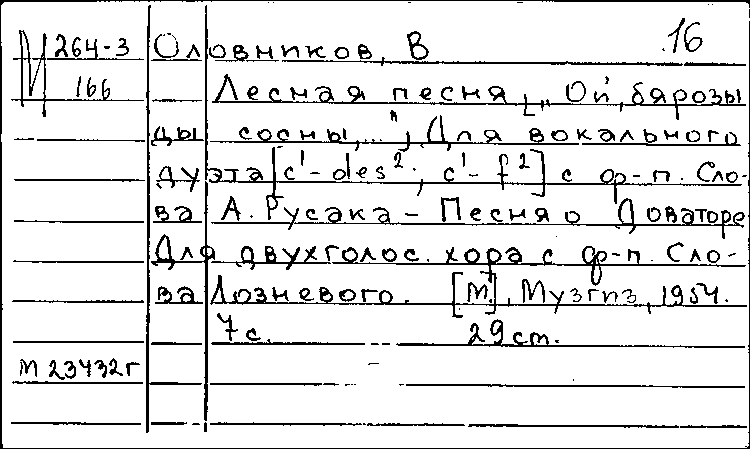 М 264-3
166
Оловников, В
16
Лесная песня [„Ой, бярозы
ды сосны,..."]. Для вокального
дуэта [c¹-des²; c¹-f²] с ф-п. Сло-
ва А. Русака – Песня о Доваторе
Для двухголос. хора с ф-п. Сло-
ва Лозневого. [М.], Музгиз, 1954.
7 с. 29 ст.
М 23432г